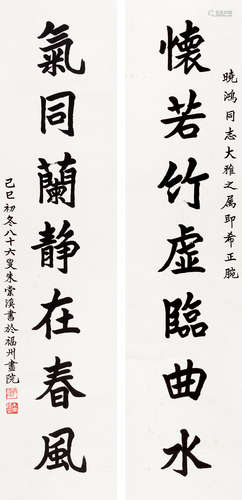 曉鴻同志大雅之属即希正腕
懷若竹虛臨曲水
氣同蘭靜在春風
己巳初冬八十六叟朱棠溪書於福州畫院